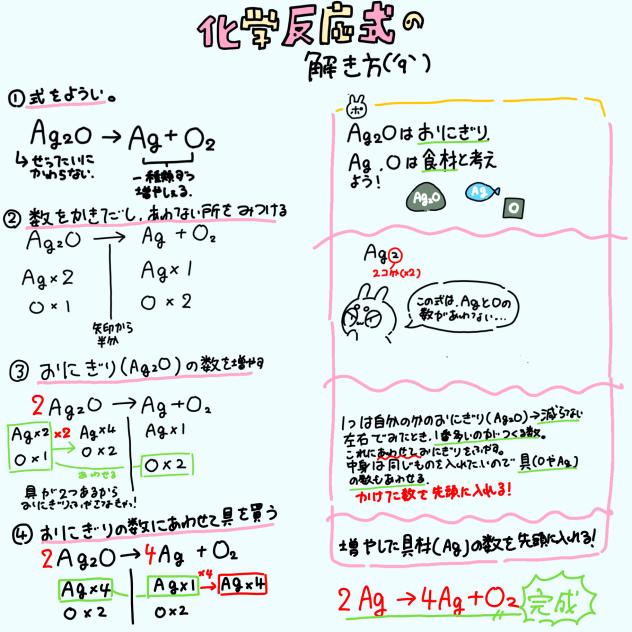 化学反応式の
解き方('9')
①式をようい。
Ag₂O → Ag + O₂
↳ ぜったいに
かわらない。
一種類ずつ
増やしえる。
② 数をかきだし、あわない所をみつける
Ag₂O → Ag + O₂
Ag×2 Ag×1
O×1 O×2
矢印から
半分
③ おにぎり(Ag₂O)の数を増やす
2Ag₂O → Ag+O₂
Ag×2 ×2 Ag×4 Ag×1
O×1 → O×2 O×2
あわせる
具が2つあるから
④ おにぎりの数にあわせて具を買う
2Ag₂O → 4Ag + O₂
Ag×4 Ag×1 ×4 → Ag×4
O×2 O×2
ポ
Ag₂Oはおにぎり、
Ag、Oは食材と考え
よう!
Ag₂O Ag O
Ag②
2コ分(×2)
この式は、AgとOの
数があわない…
1つは自分の分のおにぎり(Ag₂O)→減らない
左右でみたとき、1番多いのがつくる数。
これにあわせておにぎりをふやる。
中身は同じものを入れたいので具(OやAg)
の数もあわせる。
かけた数を先頭に入れる!
増やした具材(Ag)の数を先頭に入れる!
2Ag → 4Ag+O₂ 完成